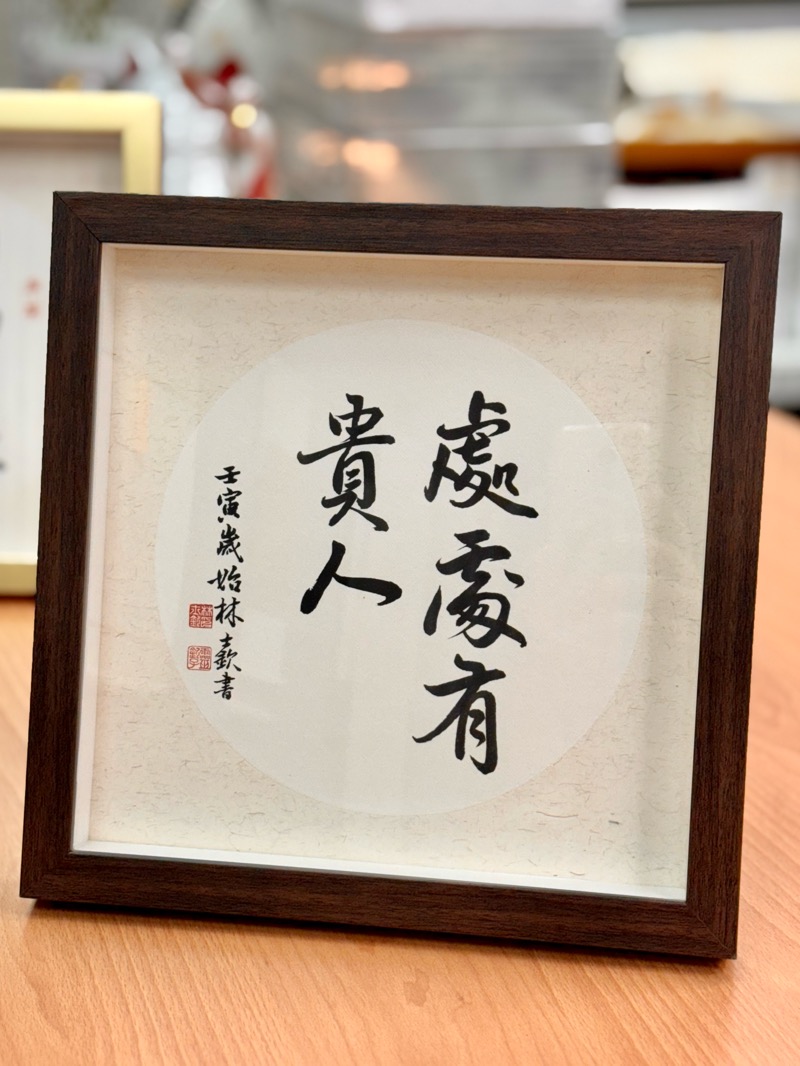 處處有
貴人
壬寅歲始林